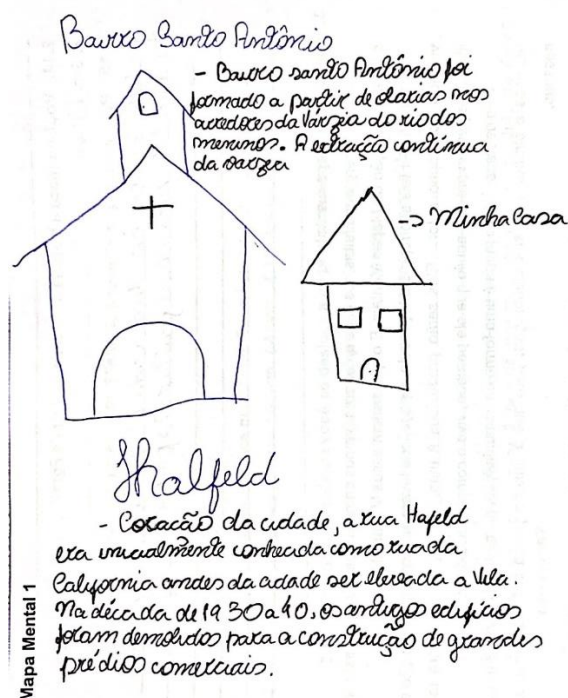 Bairro Santo Antônio
- Bairro santo Antônio foi
formado a partir de olarias nos
arredores da Várzia do rio dos
meninos. A extração continua
da varzea
-> Minha Casa
Jhalfeld
- Coração da cidade, a rua Hafeld
era inicialmente conhecida como rua da
Calyfornia andes da cidade ser elevada a Vila.
Na década de 1930 a 40, os antigos edifícios
foram demolidos para a construção de grandes
prédios comerciais.
Mapa Mental 1